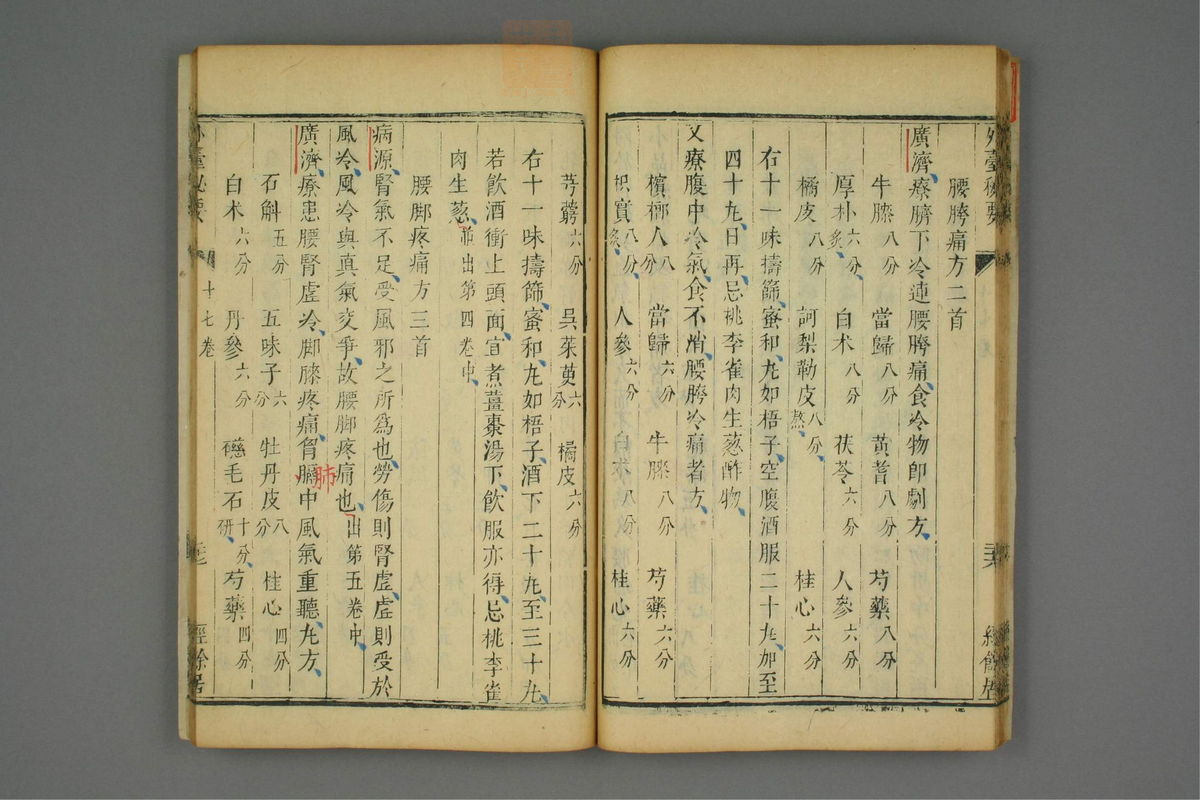 外臺秘要
經餘居
腰胯痛方二首
廣濟療臍下冷連腰胯痛食冷物即劇方
牛膝八分 當歸八分 黃耆八分 芍藥八分
厚朴六分炙 白朮八分 茯苓六分 人參六分
橘皮八分 訶梨勒皮八分熬 桂心六分
右十一味擣篩蜜和丸如梧子空腹酒服二十丸加至
四十丸日再忌桃李雀肉生葱酢物
又療腹中冷氣食不消腰胯冷痛者方
檳榔人八分 當歸六分 牛膝八分 芍藥六分
枳實八分炙 人參六分 白朮八分 桂心六分
芎藭六分 吳茱萸六分 橘皮六分
右十一味擣篩蜜和丸如梧子酒下二十丸至三十丸
若飲酒衝上頭面宜煮薑棗湯下飲服亦得忌桃李雀
肉生葱並出第四卷中
腰脚疼痛方三首
病源腎氣不足受風邪之所爲也勞傷則腎虛虛則受於
風冷風冷與真氣交爭故腰脚疼痛也出第五卷中
廣濟療患腰腎虛冷脚膝疼痛胷膈中風氣重聽丸方
肺
石斛五分 五味子六分 牡丹皮八分 桂心四分
白朮六分 丹參六分 磁毛石十分研 芍藥四分
外臺秘要
十七卷
經餘居